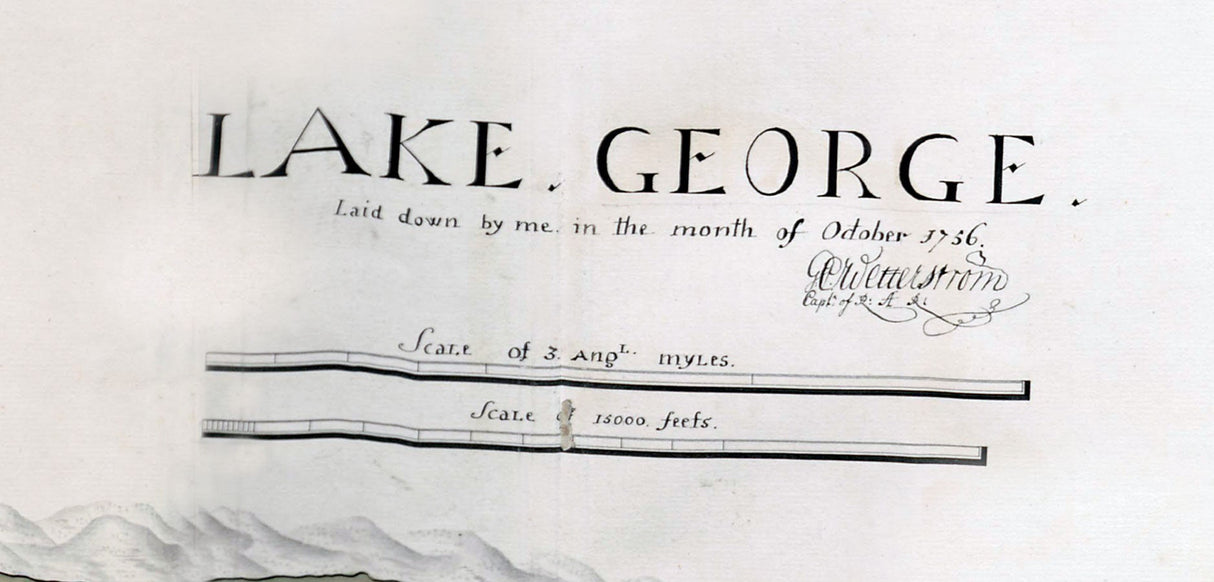 LAKE. GEORGE.
Laid down by me. in the month of October 1756.
GCWetterström
Capt: of R: A R:
Scale of 3. Angl. myles.
Scale of 15000. feets.